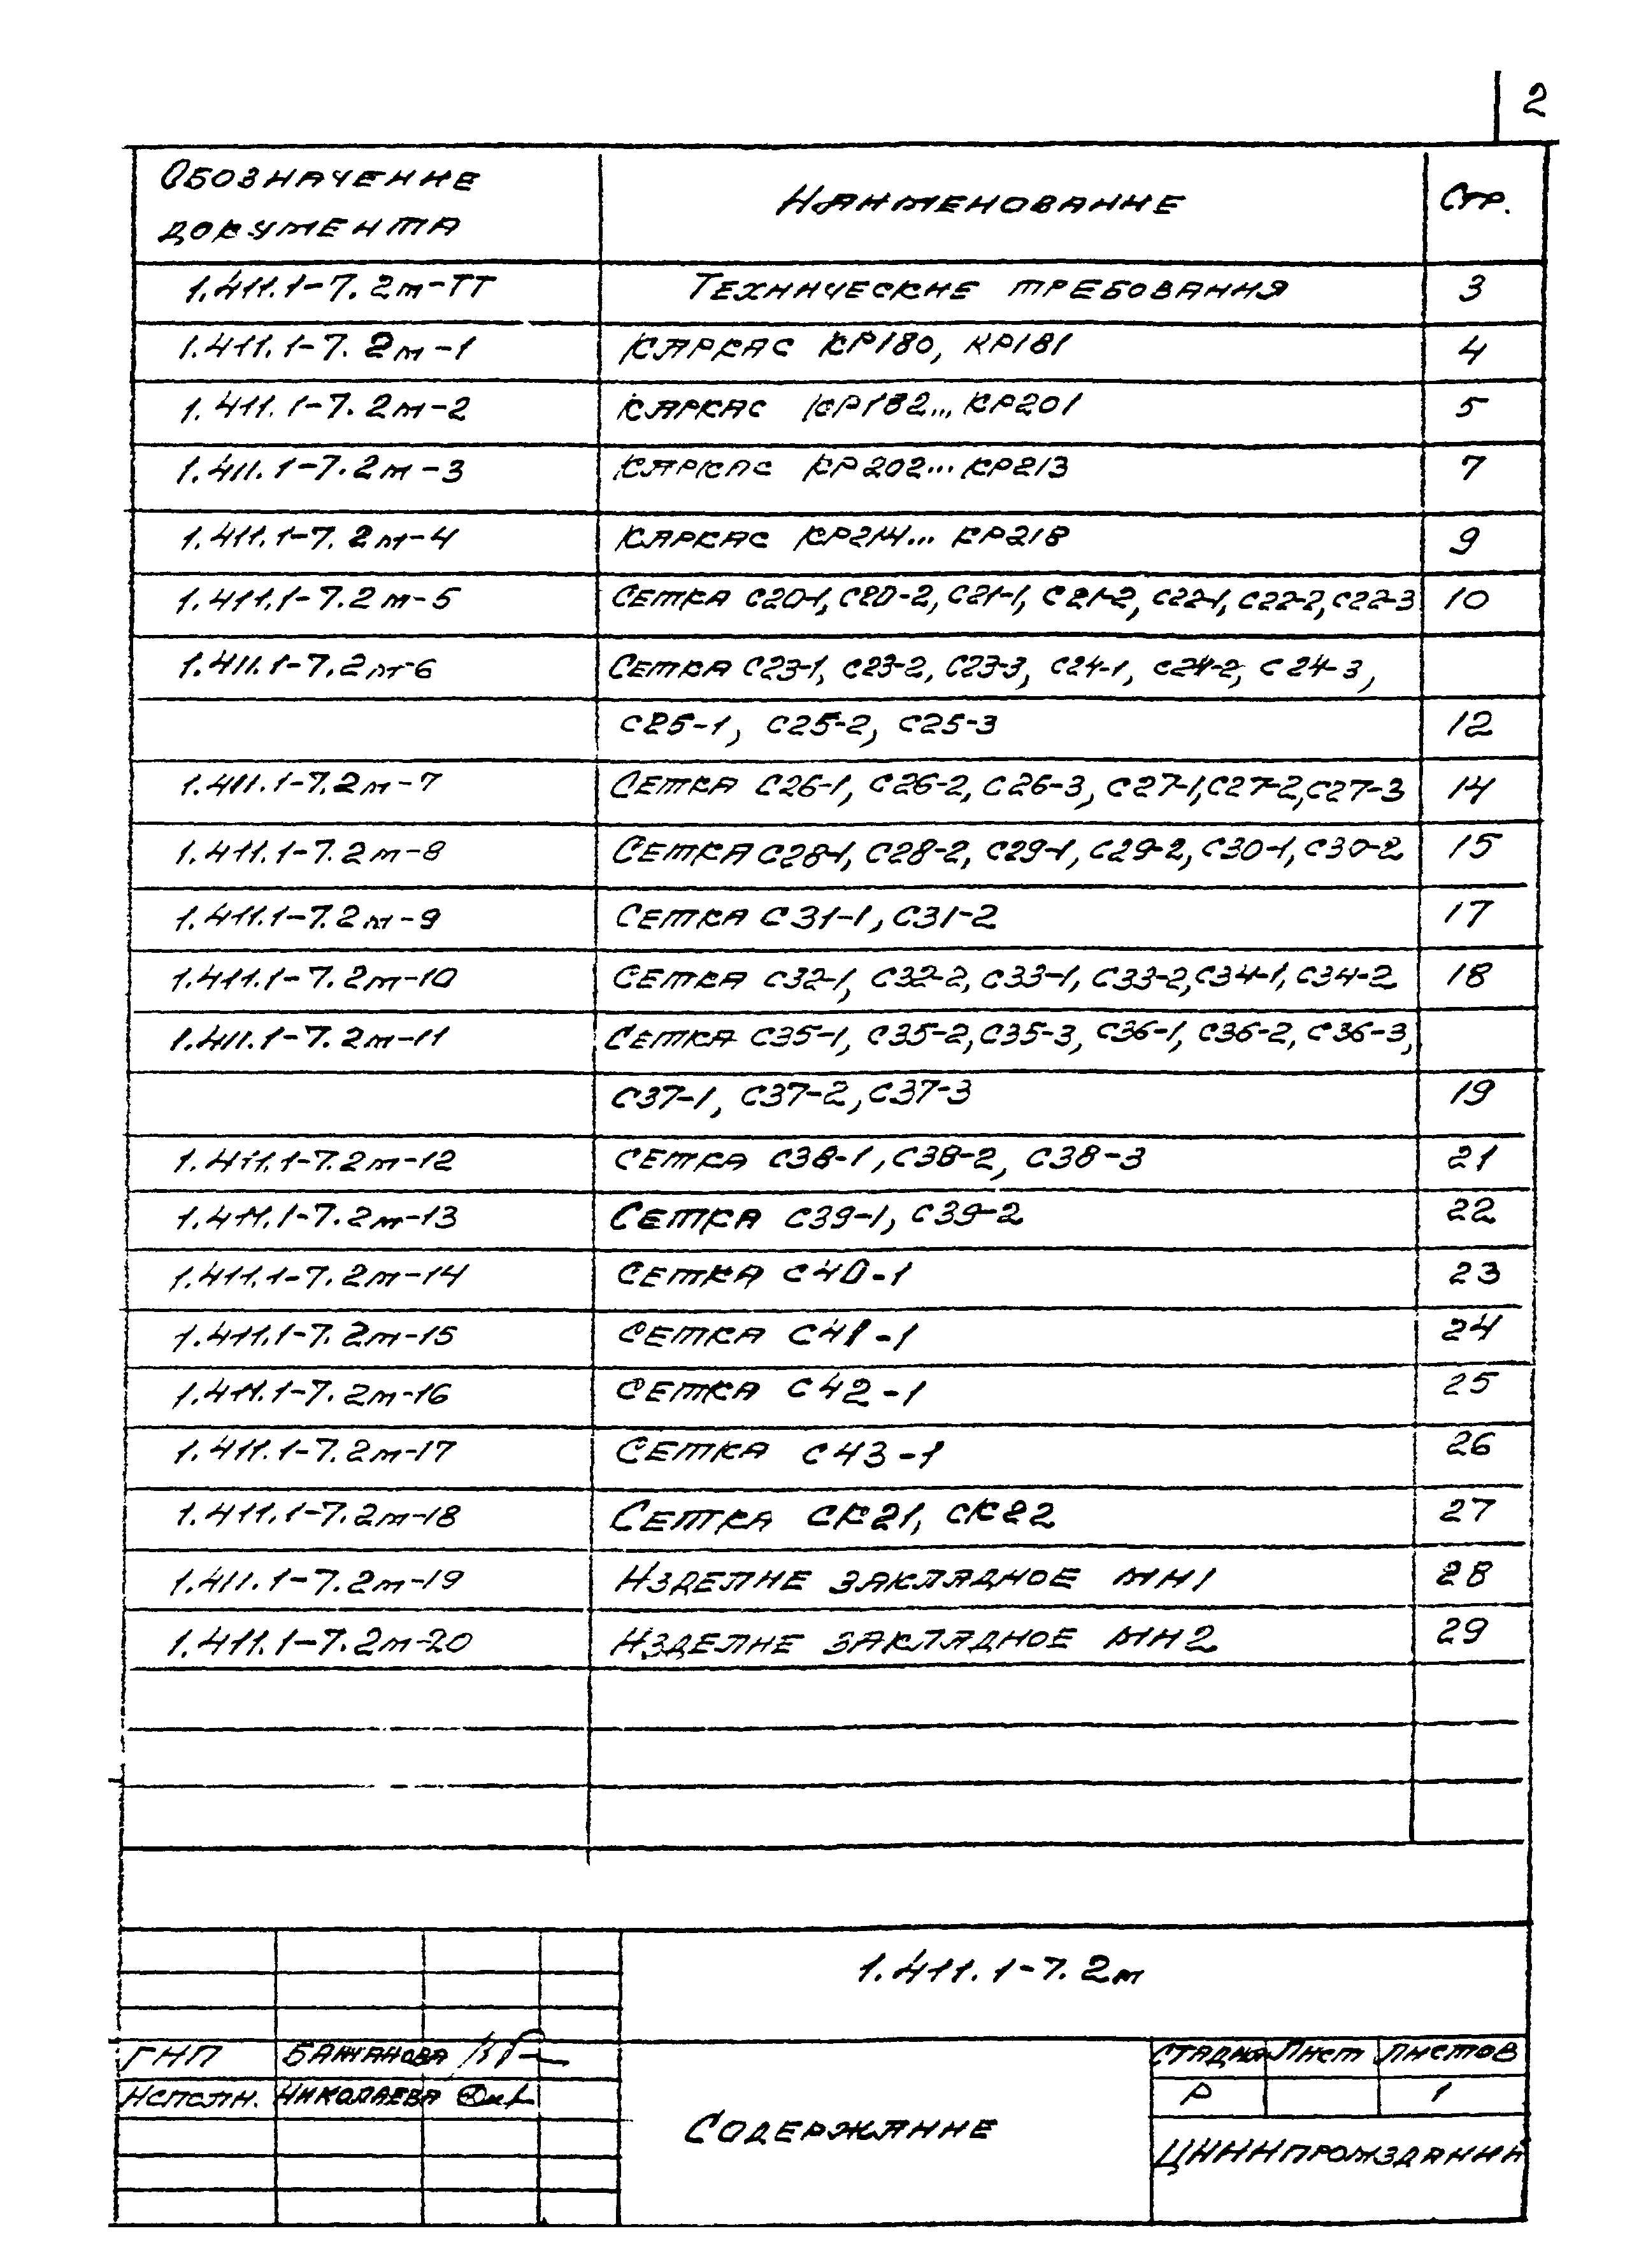 2
Обозначение документа Наименование Стр.
1.411.1-7.2т-ТТ Технические требования 3
1.411.1-7.2т-1 Каркас КР180, КР181 4
1.411.1-7.2т-2 Каркас КР182... КР201 5
1.411.1-7.2т-3 Каркас КР202... КР213 7
1.411.1-7.2т-4 Каркас КР214... КР218 9
1.411.1-7.2т-5 Сетка С20-1, С20-2, С21-1, С21-2, С22-1, С22-2, С22-3 10
1.411.1-7.2т-6 Сетка С23-1, С23-2, С23-3, С24-1, С24-2, С24-3,
С25-1, С25-2, С25-3 12
1.411.1-7.2т-7 Сетка С26-1, С26-2, С26-3, С27-1, С27-2, С27-3 14
1.411.1-7.2т-8 Сетка С28-1, С28-2, С29-1, С29-2, С30-1, С30-2 15
1.411.1-7.2т-9 Сетка С31-1, С31-2 17
1.411.1-7.2т-10 Сетка С32-1, С32-2, С33-1, С33-2, С34-1, С34-2 18
1.411.1-7.2т-11 Сетка С35-1, С35-2, С35-3, С36-1, С36-2, С36-3,
С37-1, С37-2, С37-3 19
1.411.1-7.2т-12 Сетка С38-1, С38-2, С38-3 21
1.411.1-7.2т-13 Сетка С39-1, С39-2 22
1.411.1-7.2т-14 Сетка С40-1 23
1.411.1-7.2т-15 Сетка С41-1 24
1.411.1-7.2т-16 Сетка С42-1 25
1.411.1-7.2т-17 Сетка С43-1 26
1.411.1-7.2т-18 Сетка СК21, СК22 27
1.411.1-7.2т-19 Изделие закладное МН1 28
1.411.1-7.2т-20 Изделие закладное МН2 29
1.411.1-7.2т
ГИП Бажанова
Исполн. Николаева
Содержание
Стадия Лист Листов
Р 1
ЦНИИпромзданий